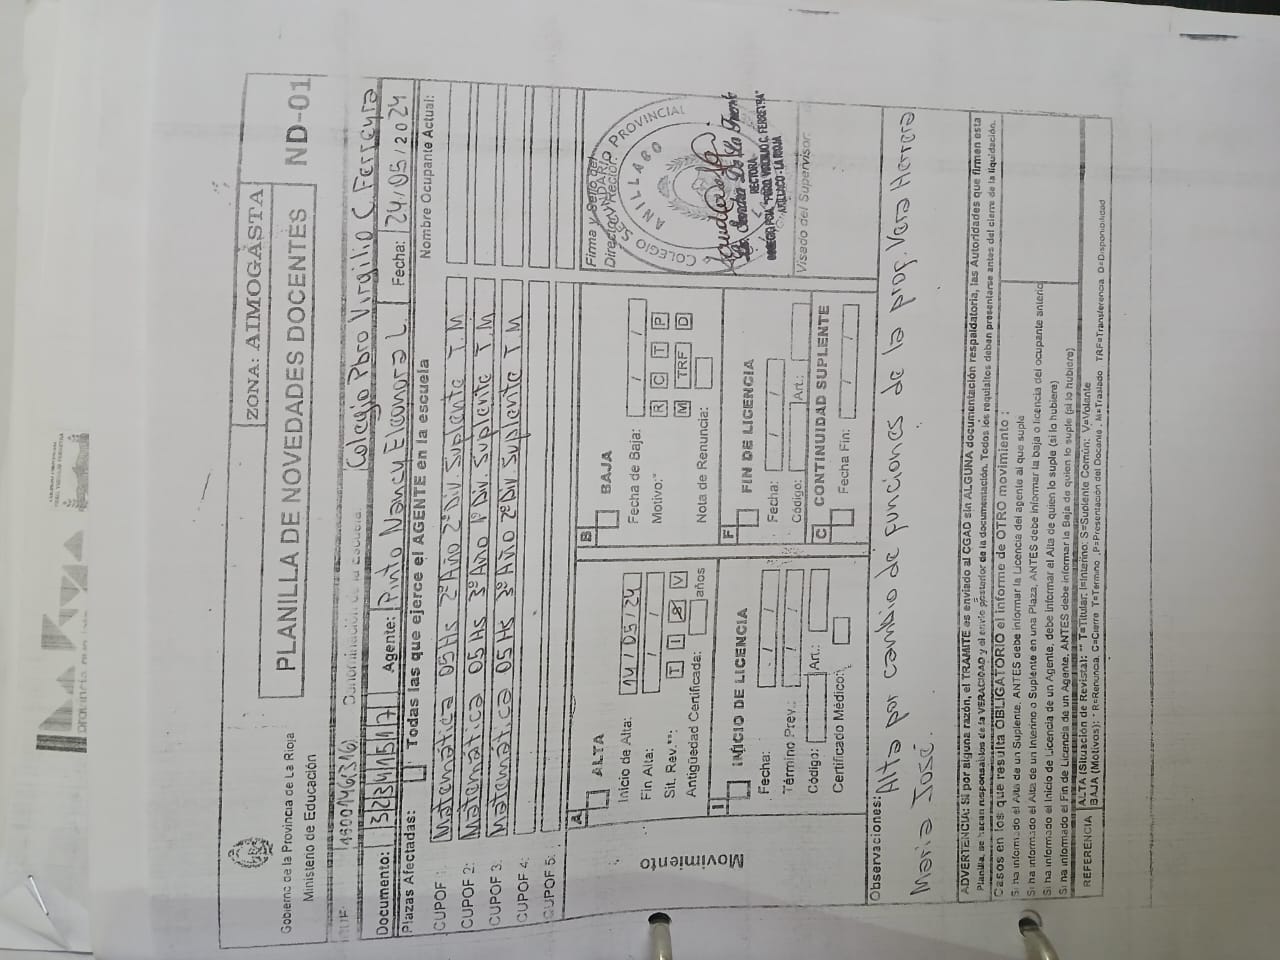 Gobierno de la Provincia de La Rioja
Ministerio de Educación
ZONA: AIMOGASTA
PLANILLA DE NOVEDADES DOCENTES ND-01
Denominación de la Escuela: Colegio Pbro Virgilio C. Ferreyra
Documento: 32341517 Agente: Pinto Nancy Eleonora L. Fecha: 24/05/2024
Plazas Afectadas: Todas las que ejerce el AGENTE en la escuela Nombre Ocupante Actual:
CUPOF 1: Matemática 05 Hs 2º Año 2º Div. Suplente T.M
CUPOF 2: Matemática 05 Hs 3º Año 1º Div. Suplente T.M
CUPOF 3: Matemática 05 Hs 3º Año 2º Div Suplente T.M
CUPOF 4:
CUPOF 5:
Movimiento
A ALTA
Inicio de Alta: 14/05/24
Fin Alta: / /
Sit. Rev.**: T I S V
Antigüedad Certificada: años
B BAJA
Fecha de Baja: / /
Motivo:* R C T P
M TRF D
Nota de Renuncia:
I INICIO DE LICENCIA
Fecha: / /
Término Prev.: / /
Código: Art.:
Certificado Médico:
F FIN DE LICENCIA
Fecha: / /
Código: Art.:
C CONTINUIDAD SUPLENTE
Fecha Fin: / /
Firma y Sello del
Director/Rector:
COLEGIO SECUNDARIO PROVINCIAL
ANILLACO
RECTORA
Visado del Supervisor:
Observaciones: Alta por cambio de funciones de la prof. Vera Herrera
María José.
ADVERTENCIA: Si por alguna razón, el TRAMITE es enviado al CGAD sin ALGUNA documentación respaldatoria, las Autoridades que firmen esta
Planilla, se hacen responsables de la VERACIDAD y el envío posterior de la documentación. Todos los requisitos deben presentarse antes del cierre de la liquidación.
Casos en los que resulta OBLIGATORIO el informe de OTRO movimiento:
Si ha informado el Alta de un Suplente, ANTES debe informar la Licencia del agente al que suple
Si ha informado el Alta de un Interino o Suplente en una Plaza, ANTES debe informar la baja o licencia del ocupante anterio
Si ha informado el Inicio de Licencia de un Agente, debe informar el Alta de quien lo suple (si lo hubiera)
Si ha informado el Fin de Licencia de un Agente, ANTES debe informar la Baja de quien lo suple (si lo hubiere)
REFERENCIA ALTA (Situación de Revista): ** T=Titular; I=Interino; S=Suplente Común; V=Volante
BAJA (Motivos): * R=Renuncia, C=Cierre T=Termino ,P=Presentación del Docente , M=Traslado TRF=Transferencia D=Disponibilidad